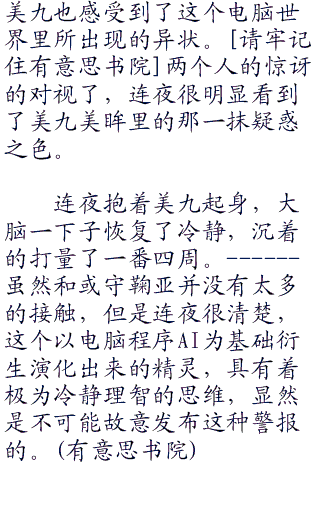 美九也感受到了这个电脑世
界里所出现的异状。[请牢记
住有意思书院]两个人的惊讶
的对视了，连夜很明显看到
了美九美眸里的那一抹疑惑
之色。
连夜抱着美九起身，大
脑一下子恢复了冷静，沉着
的打量了一番四周。------
虽然和或守鞠亚并没有太多
的接触，但是连夜很清楚，
这个以电脑程序AI为基础衍
生演化出来的精灵，具有着
极为冷静理智的思维，显然
是不可能故意发布这种警报
的。(有意思书院)